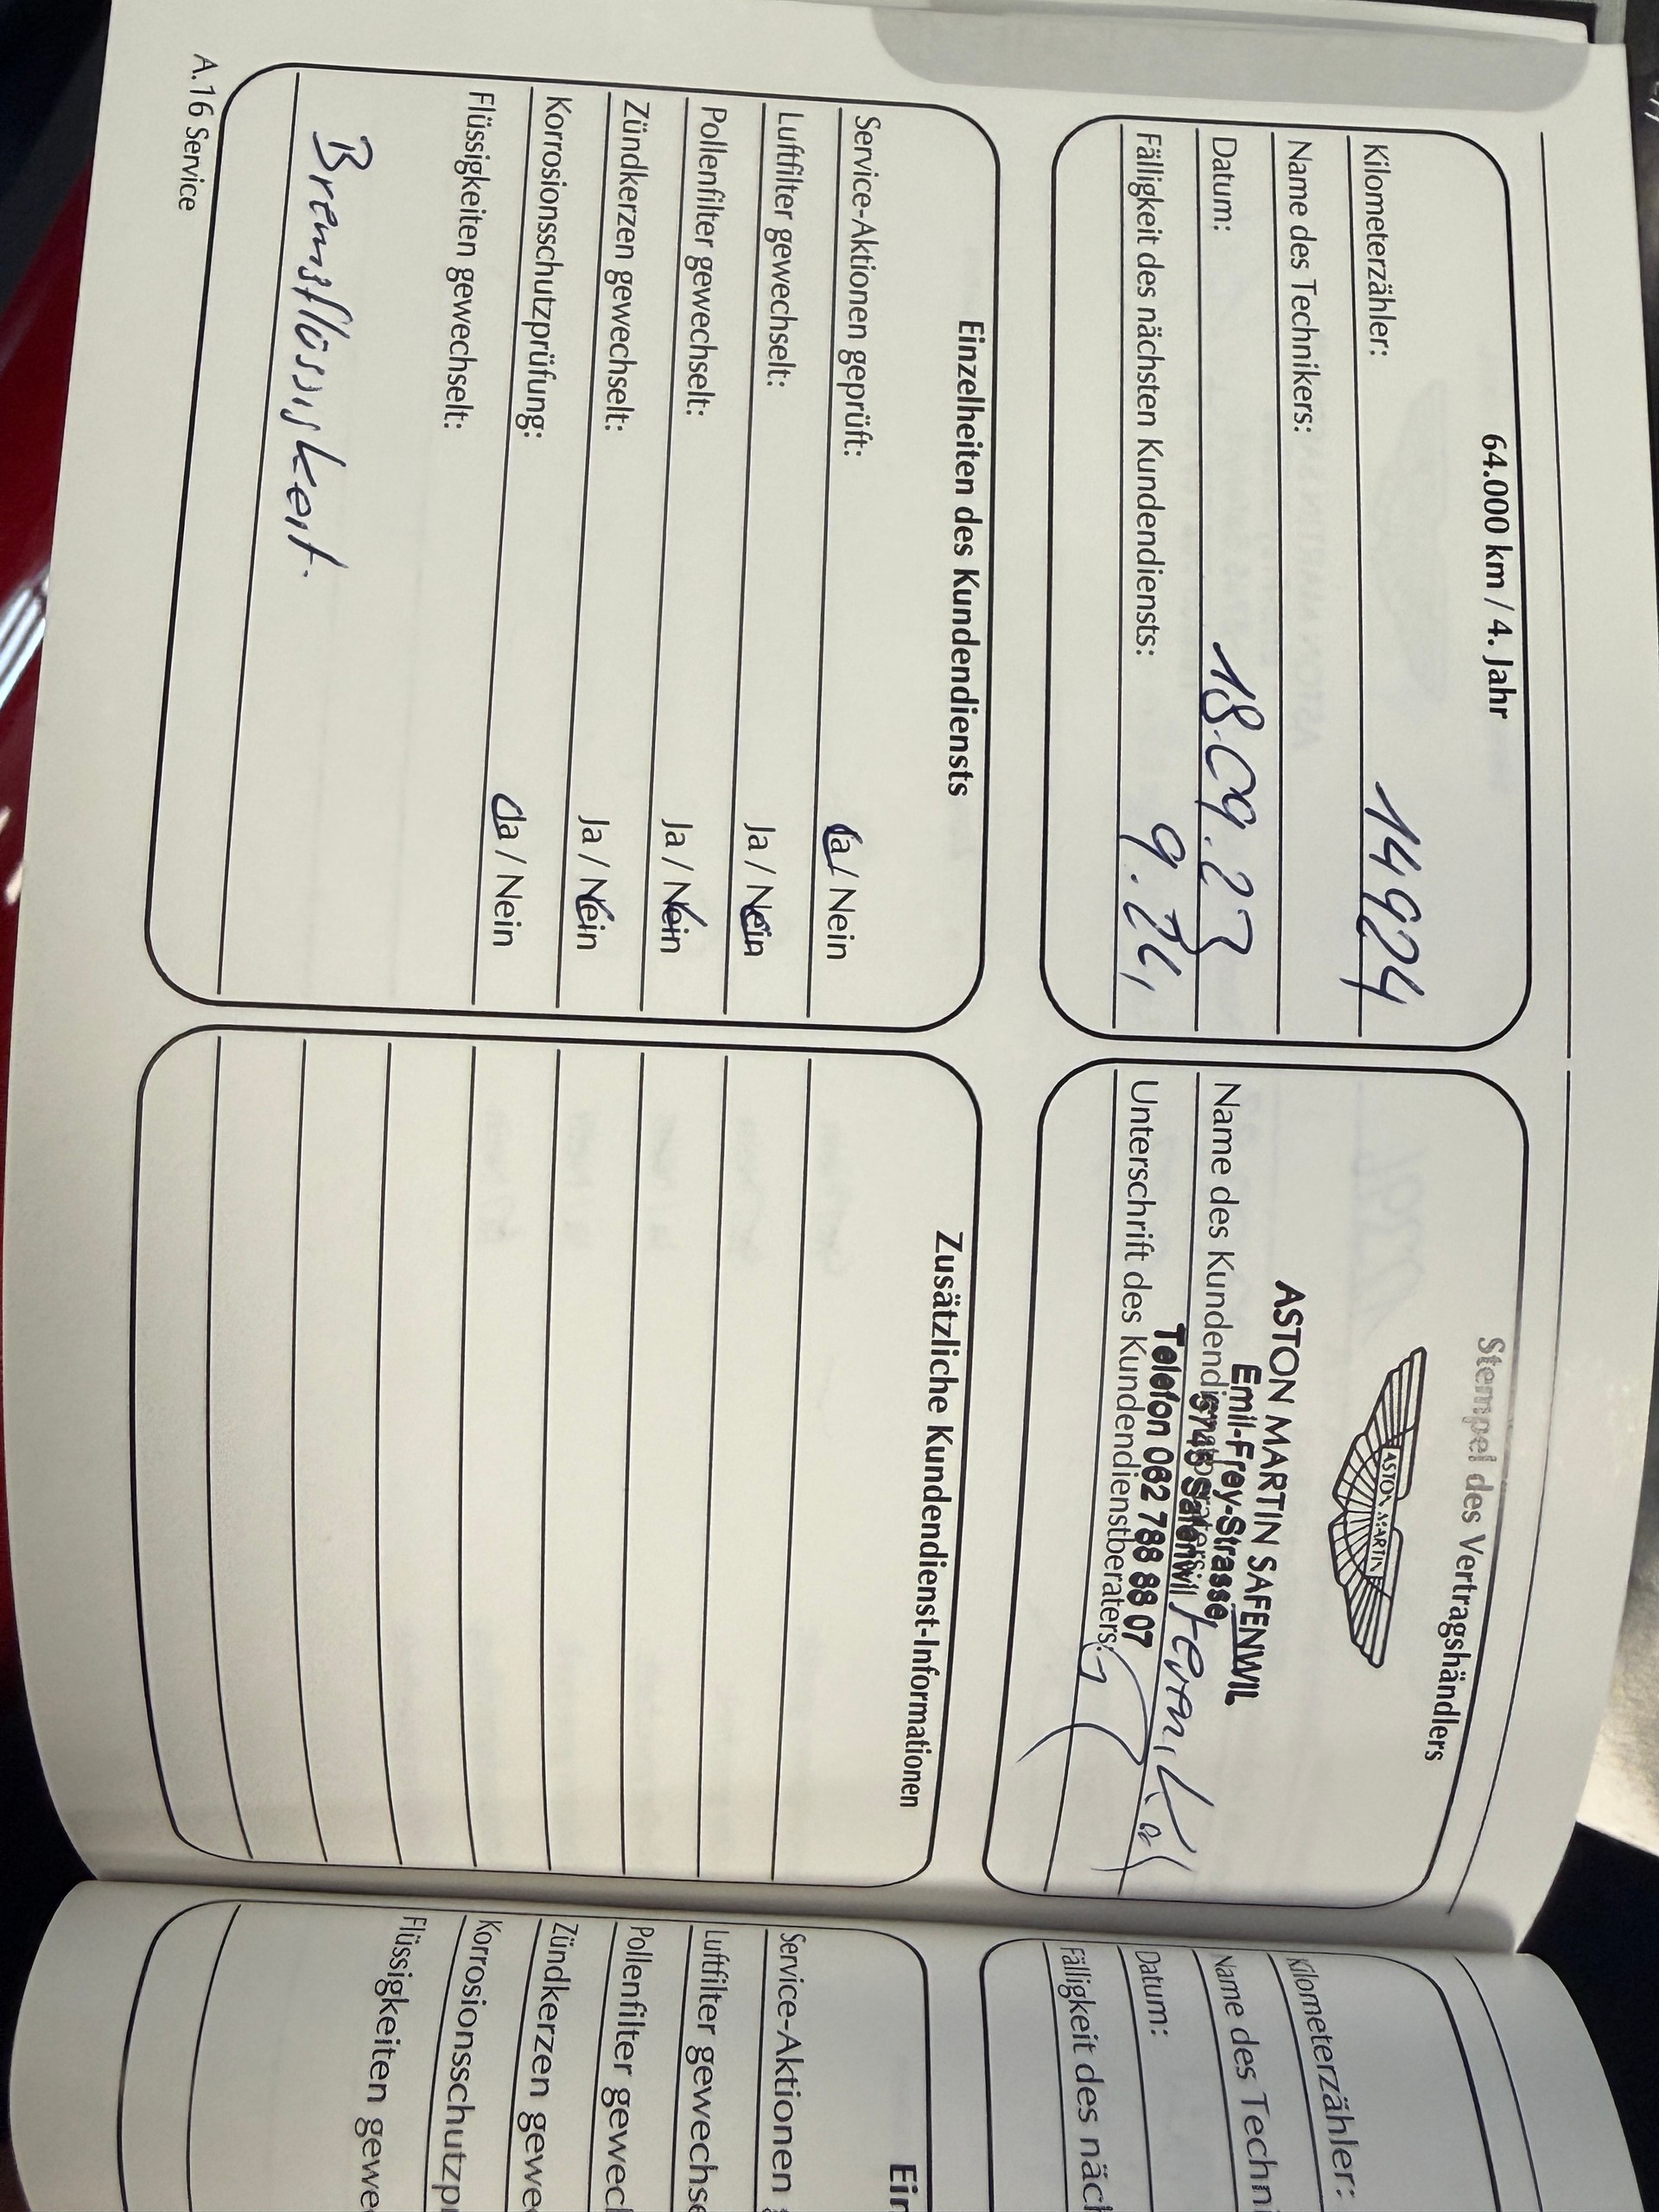 64.000 km / 4. Jahr
Kilometerzähler: 14924
Name des Technikers:
Datum: 18.09.23
Fälligkeit des nächsten Kundendiensts: 9.24
Stempel des Vertragshändlers
ASTON MARTIN
ASTON MARTIN SAFENWIL
Emil-Frey-Strasse
5745 Safenwil
Telefon 062 788 88 07
Name des Kundendienstberaters:
Unterschrift des Kundendienstberaters:
Einzelheiten des Kundendiensts
Service-Aktionen geprüft: Ja / Nein
Luftfilter gewechselt: Ja / Nein
Pollenfilter gewechselt: Ja / Nein
Zündkerzen gewechselt: Ja / Nein
Korrosionsschutzprüfung: Ja / Nein
Flüssigkeiten gewechselt:
Bremsflüssigkeit.
Zusätzliche Kundendienst-Informationen
A.16 Service
Kilometerzähler:
Name des Techni
Datum:
Fälligkeit des näch
Ein
Service-Aktionen
Luftfilter gewechse
Pollenfilter gewech
Zündkerzen gewe
Korrosionsschutzp
Flüssigkeiten gewe